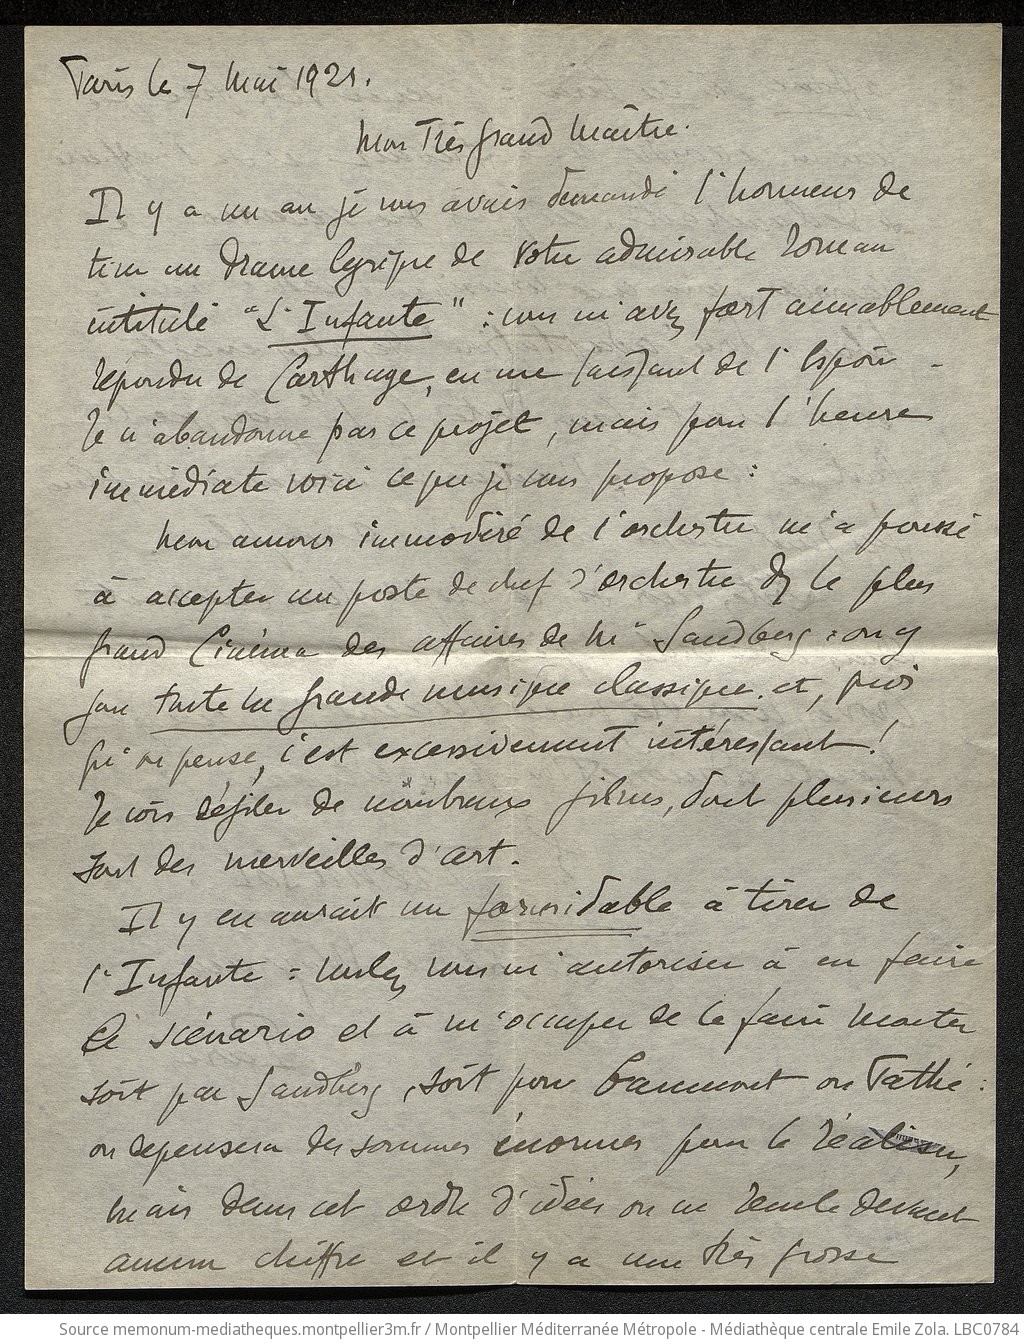 Paris le 7 Mai 1921.
Mon Très grand Maître.
Il y a un an je vous avais demandé l'honneur de
tirer un Drame lyrique de votre admirable Roman
intitulé "L'Infante" : vous m'avez fort aimablement
répondu de Carthage, en me laissant de l'Espoir -
Je n'abandonne pas ce projet, mais pour l'heure
immédiate voici ce que je vous propose :
Mon amour immodéré de l'orchestre m'a poussé
à accepter un poste de chef d'orchestre ds le plus
grand Cinéma des affaires de Mr Sandberg : on y
joue toute la grande musique classique, et,
qu'on pense, c'est excessivement intéressant !
Je vois défiler de nombreux films, dont plusieurs
sont des merveilles d'art.
Il y en aurait un formidable à tirer de
l'Infante : voulez vous m'autoriser à en faire
le scénario et à m'occuper de le faire monter
soit par Sandberg, soit par Gaumont ou Pathé :
on dépensera des sommes énormes pour le réaliser,
mais dans cet ordre d'idées on ne recule devant
aucun chiffre et il y a une très grosse
Source memonum-mediatheques.montpellier3m.fr / Montpellier Méditerranée Métropole - Médiathèque centrale Emile Zola. LBC0784